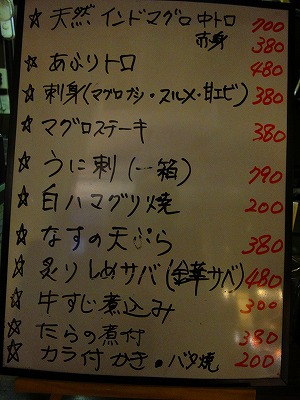 ☆ 天然 インドマグロ 中トロ 700
赤身 380
☆ あぶりトロ 480
☆ 刺身(マグロブツ・スルメ・甘エビ) 380
☆ マグロステーキ 380
☆ うに刺(一箱) 790
☆ 白ハマグリ焼 200
☆ なすの天ぷら 380
☆ 炙りしめサバ(金華サバ) 480
☆ 牛すじ煮込み 300
☆ たらの煮付 380
☆ カラ付かき・バタ焼 200